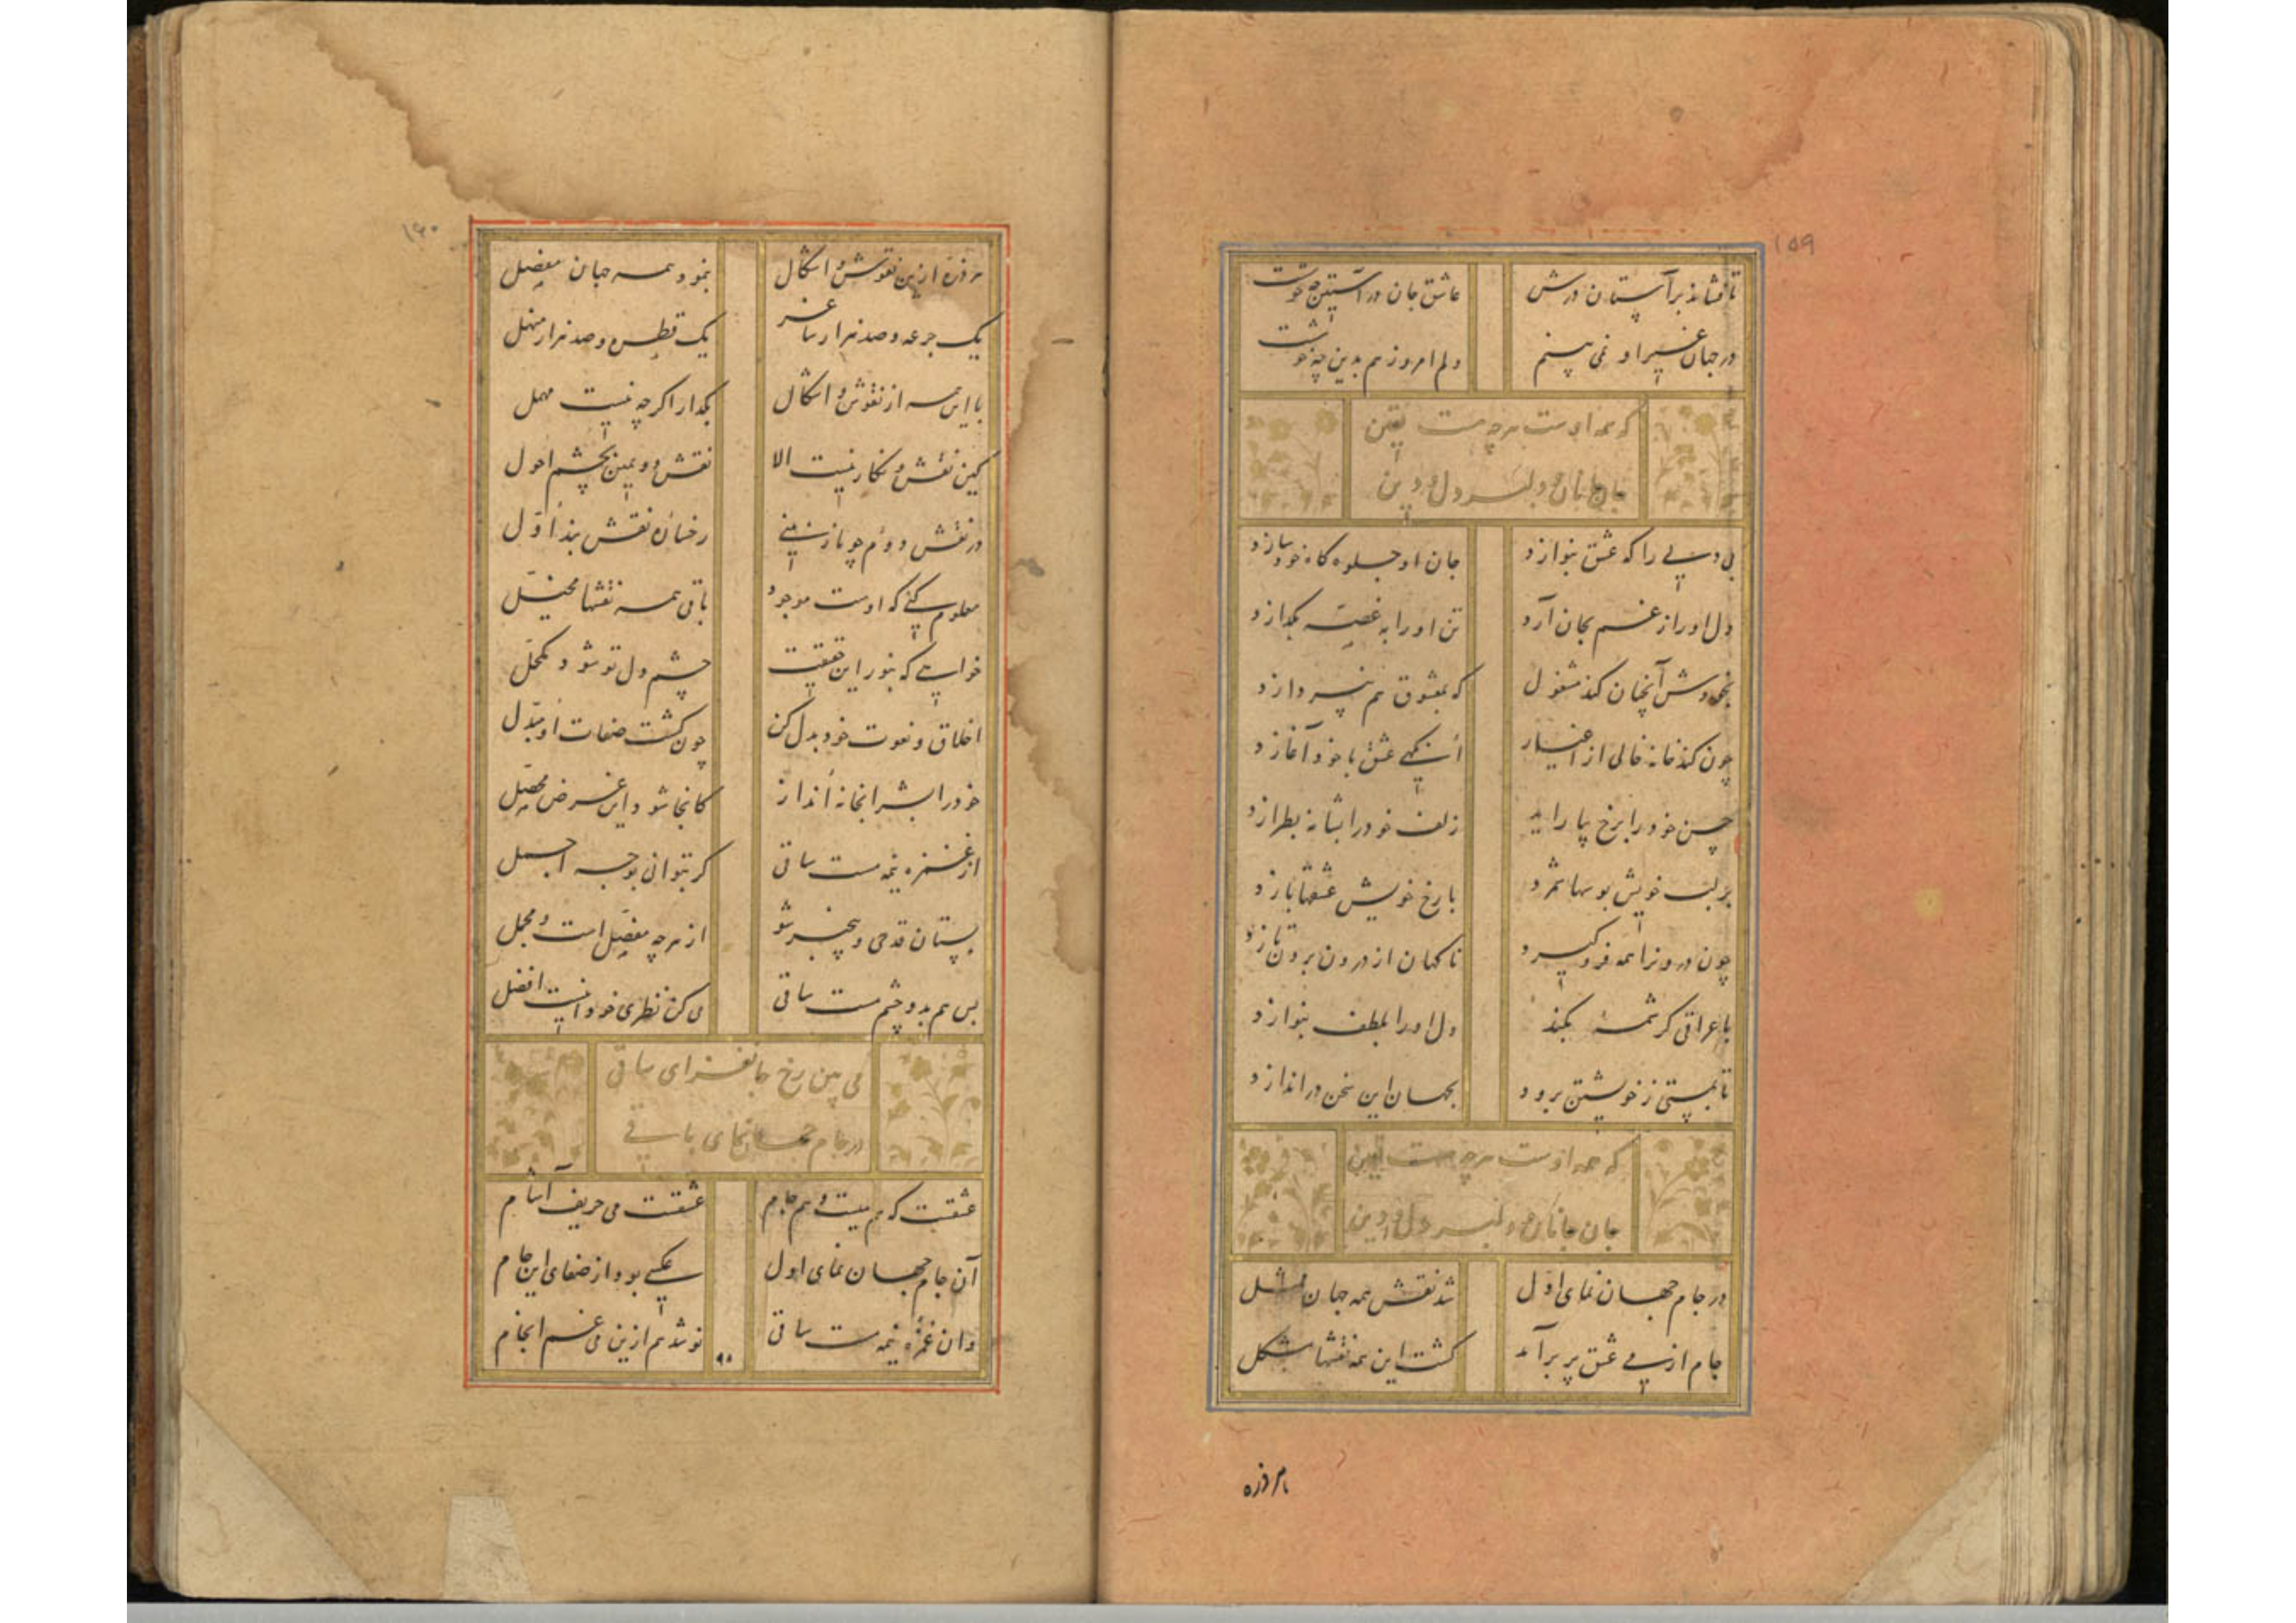 ۱۵۹
تا فشاند بر آستان درش عاشق جان در آستین چه خوشست
در جهان غیر او نمی بینم دلم امروز هم بدین چه خوشست
که همه اوست هرچه هست یقین
جان و جانان و دلبر و دل و دین
بی دلی را که عشق بنوازد جان او جلوه گاه خود سازد
دل او را ز غم بجان آرد تن او را به غصه بگدازد
بخودش آنچنان کند مشغول که بمعشوق هم نپردازد
چون کند خانه خالی از اغیار آنگهی عشق با خود آغازد
حسن خود را برخ بیاراید زلف خود را بشانه بطرازد
بر لب خویش بوسها شمرد با رخ خویش عشقها بازد
چون درون را همه فرو گیرد ناگهان از درون برون تازد
با عراقی کرشمهٔ بکند دل او را بلطف بنوازد
تا بمستی ز خویشتن برود بجهان این سخن دراندازد
که همه اوست هرچه هست یقین
جان و جانان و دلبر و دل و دین
در جام جهان نمای اول شد نقش همه جهان ممثل
جام از می عشق پر برآمد گشت این همه نقشها مشکل
هر ذره
۱۶۰
هر ذره ازین نقوش و اشکال بنمود همه جهان مفصل
یک جرعه و صد هزار ساغر یک قطره و صد هزار منهل
با این همه از نقوش و اشکال بگذار اگرچه نیست مهمل
کین نقش و نگار نیست الا نقش دویمین بچشم احول
در نقش دوم چو باز بینی رخسارهٔ نقش بند اول
معلوم کنی که اوست موجود باقی همه نقشها مخیل
خواهی که بنور این حقیقت چشم دل تو شود مکحل
اخلاق و نعوت خود بدل کن چون گشت صفات او مبدل
خود را بشرابخانه انداز کانجا شود این غرض محصل
از غمزهٔ نیم مست ساقی گر بتوانی بوجه اجمل
بستان قدحی و بیخبر شو از هرچه مفصل است و مجمل
بس هم بدو چشم مست ساقی می کن نظری خود اینست افضل
می بین رخ جانفزای ساقی
در جام جهان نمای باقی
عشقست که هم میست و هم جام عشقست می حریف آشام
آن جام جهان نمای اول عکسی بود از صفای این جام
وان غمزهٔ نیم مست ساقی نوشد هم ازین می غم انجام